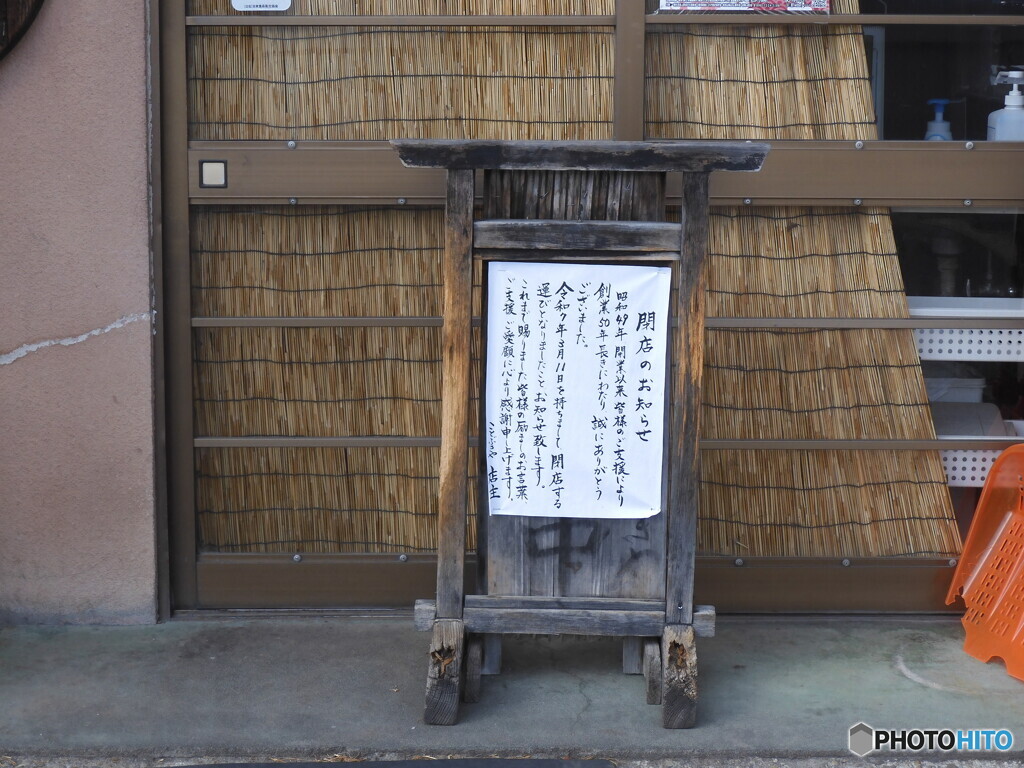 閉店のお知らせ
昭和49年 開業以来 皆様のご支援により
創業50年 長きにわたり 誠にありがとう
ございました。
令和7年3月11日を持ちまして 閉店する
運びとなりましたこと お知らせ致します。
これまで賜りました皆様の励ましのお言葉、
ご支援 ご愛顧に心より感謝申し上げます。
店主
中
PHOTOHITO